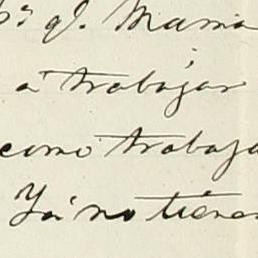 q. Mama
á trabajar
como trabaja
Ya no tiene